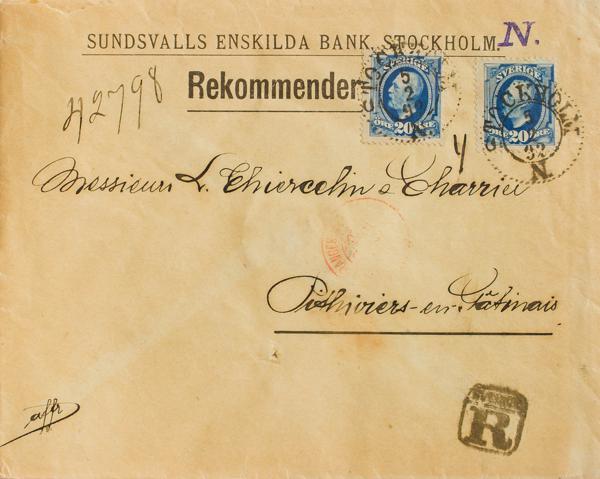 SUNDSVALLS ENSKILDA BANK, STOCKHOLM. N.
Rekommender
42798
SVERIGE
20 ÖRE
STOCKHOLM
5
2
92
N.
SVERIGE
ÖRE 20 ÖRE
STOCKHOLM
5
2
92
N
Messieurs L. Thiercelin & Charrier
Pithiviers-en-Gâtinais
affr
SVERIGE
R